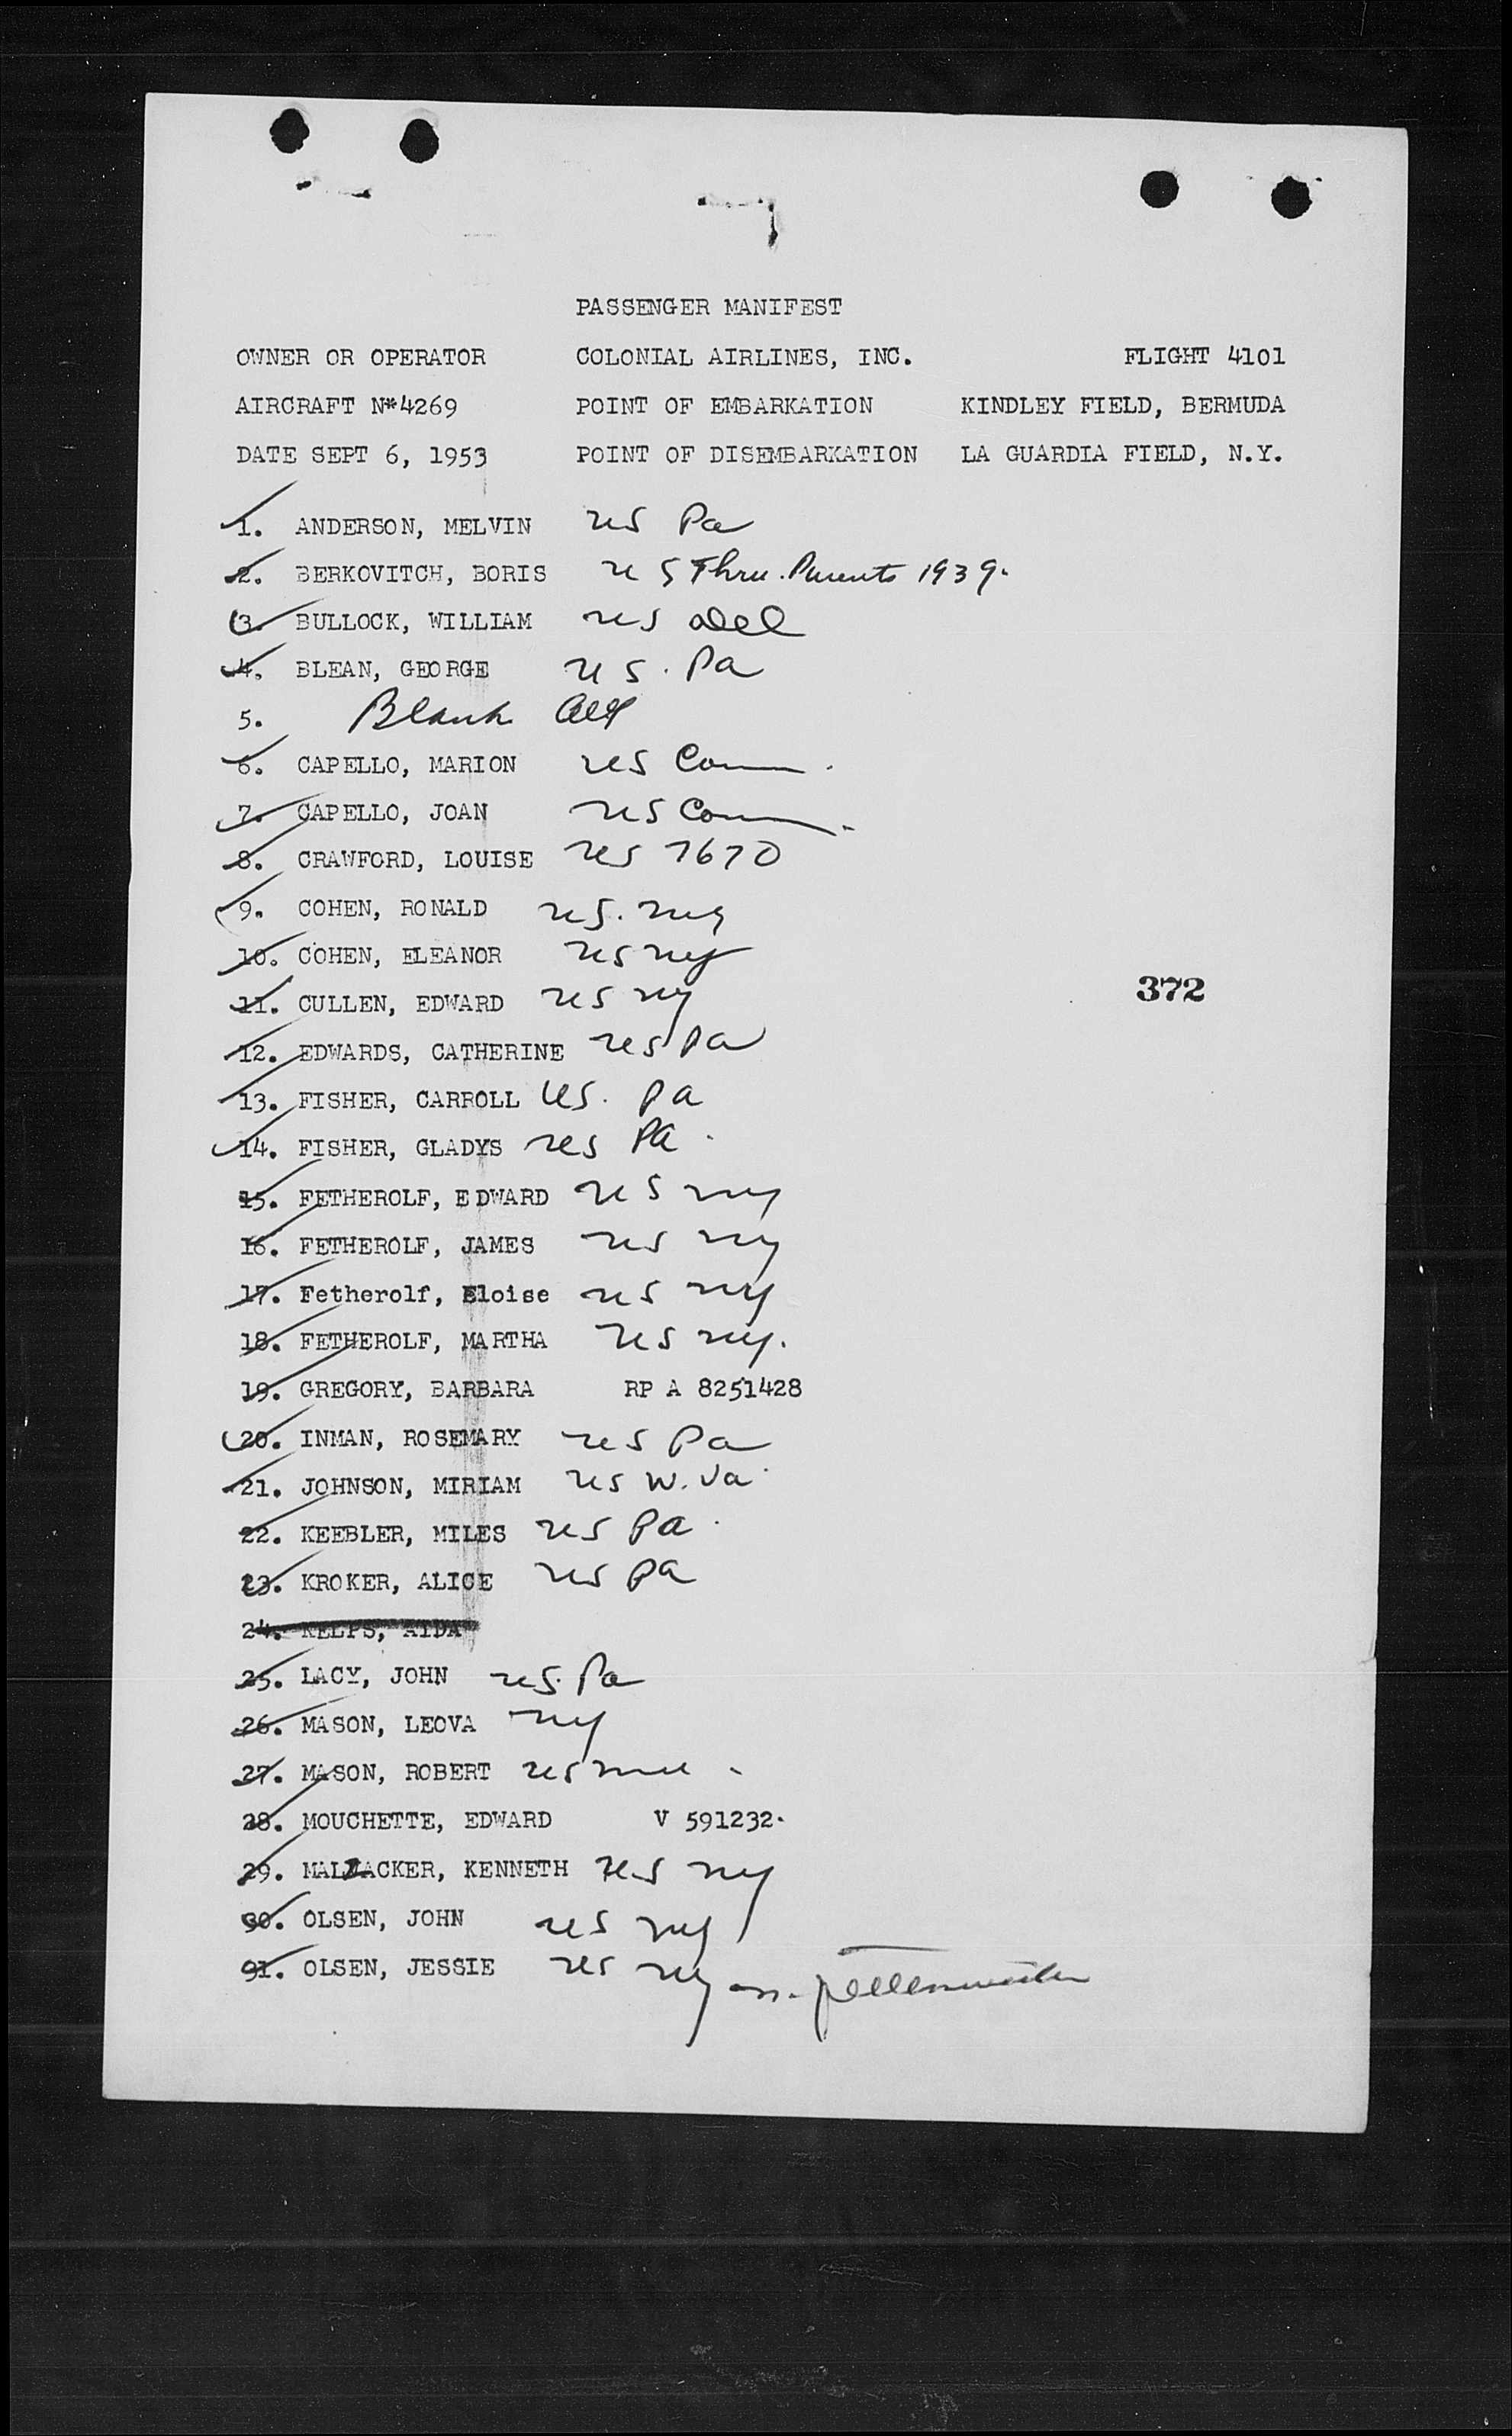 PASSENGER MANIFEST
OWNER OR OPERATOR COLONIAL AIRLINES, INC. FLIGHT 4101
AIRCRAFT N*4269 POINT OF EMBARKATION KINDLEY FIELD, BERMUDA
DATE SEPT 6, 1953 POINT OF DISEMBARKATION LA GUARDIA FIELD, N.Y.
1. ANDERSON, MELVIN US Pa
2. BERKOVITCH, BORIS US Thru. Parents 1939.
3. BULLOCK, WILLIAM US Del
4. BLEAN, GEORGE US. Pa
5. Blank
6. CAPELLO, MARION US Conn.
7. CAPELLO, JOAN US Conn.
8. CRAWFORD, LOUISE US 7670
9. COHEN, RONALD US. ny
10. COHEN, ELEANOR US ny
372
11. CULLEN, EDWARD US ny
12. EDWARDS, CATHERINE US Pa
13. FISHER, CARROLL US. Pa
14. FISHER, GLADYS US Pa.
15. FETHEROLF, EDWARD US ny
16. FETHEROLF, JAMES US ny
17. Fetherolf, Eloise US ny
18. FETHEROLF, MARTHA US ny.
19. GREGORY, BARBARA RP A 8251428
20. INMAN, ROSEMARY US Pa
21. JOHNSON, MIRIAM US W. Va.
22. KEEBLER, MILES US Pa.
23. KROKER, ALICE US Pa
24. KELPS, AIDA
25. LACY, JOHN US. Pa
26. MASON, LEOVA ny
27. MASON, ROBERT US
28. MOUCHETTE, EDWARD V 591232.
29. KENNETH US ny
30. OLSEN, JOHN US ny
31. OLSEN, JESSIE US ny